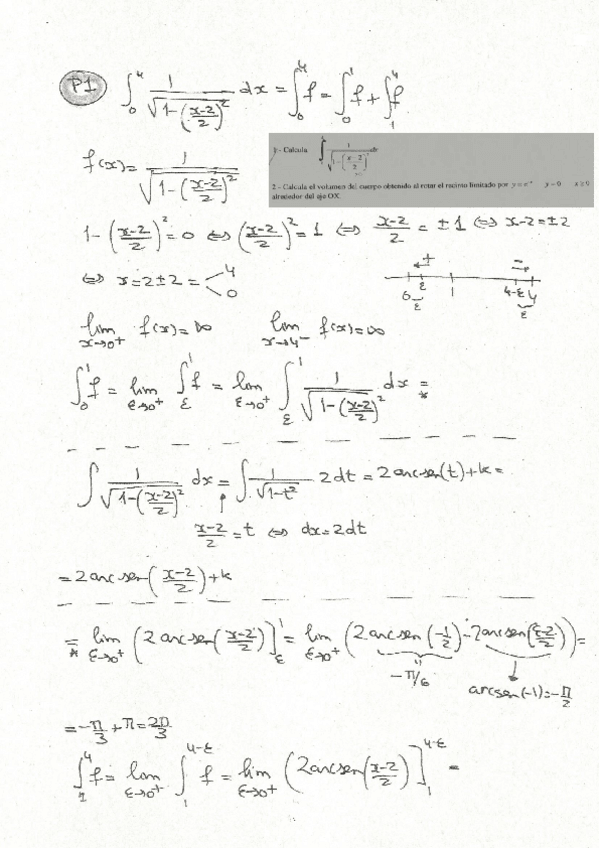 P1 ∫₀⁴ 1/√(1-((x-2)/2)²) dx = ∫₀⁴ f = ∫₀¹ f + ∫₁⁴ f
1.- Calcula ∫ 1/√(1-((x-2)/2)²) dx
f(x) = 1/√(1-((x-2)/2)²)
2.- Calcula el volumen del cuerpo obtenido al rotar el recinto limitado por y = e⁻ˣ y = 0 x ≥ 0
alrededor del eje OX.
1-((x-2)/2)² = 0 ⇔ ((x-2)/2)² = 1 ⇔ (x-2)/2 = ±1 ⇔ x-2 = ±2
⇔ x = 2±2 = < 4
0
+ -
0 ε 1 4-ε 4
ε ε
lim x→0⁺ f(x) = ∞ lim x→4⁻ f(x) = ∞
∫₀¹ f = lim ε→0⁺ ∫_ε^1 f = lim ε→0⁺ ∫_ε^1 1/√(1-((x-2)/2)²) dx =*
∫ 1/√(1-((x-2)/2)²) dx = ∫ 1/√(1-t²) 2dt = 2 arcsen(t) + k =
(x-2)/2 = t ⇔ dx = 2dt
= 2 arcsen((x-2)/2) + k
=* lim ε→0⁺ (2 arcsen((x-2)/2)]_ε^1 = lim ε→0⁺ (2 arcsen(-1/2) - 2 arcsen((ε-2)/2)) =
-π/6
arcsen(-1) = -π/2
= -π/3 + π = 2π/3
∫₁⁴ f = lim ε→0⁺ ∫₁^(4-ε) f = lim ε→0⁺ (2 arcsen((x-2)/2)]₁^(4-ε) =